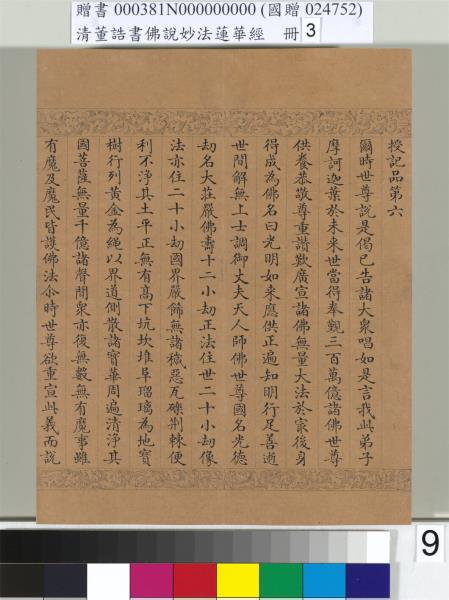 贈書 000381N000000000 (國贈 024752)
清董誥書佛說妙法蓮華經 冊 3
授記品第六
爾時世尊說是偈已告諸大衆唱如是言我此弟子
摩訶迦葉於未來世當得奉覲三百萬億諸佛世尊
供養恭敬尊重讚歎廣宣諸佛無量大法於最後身
得成為佛名曰光明如来應供正遍知明行足善逝
世間解無上士調御丈夫天人師佛世尊國名光德
劫名大莊嚴佛壽十二小劫正法住世二十小劫像
法亦住二十小劫國界嚴飾無諸穢惡瓦礫荆棘便
利不淨其土平正無有高下坑坎堆阜瑠璃為地寶
樹行列黃金為繩以界道側散諸寶華周遍清淨其
國菩薩無量千億諸聲聞衆亦復無數無有魔事雖
有魔及魔民皆護佛法尒時世尊欲重宣此義而說
9